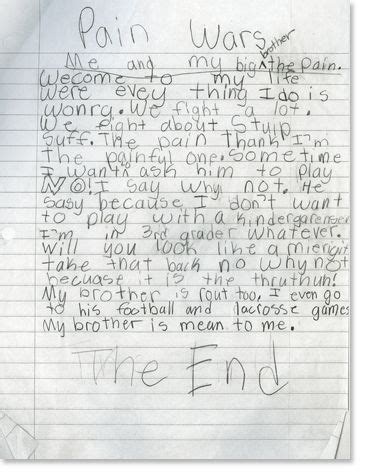 Pain Wars
Me and my big brother the pain.
Wecome to my life
were evey thing I do is
wonrg. We fight a lot.
We fight about stuip
suff. The pain thank I'm
the painful one. Sometime
I want's ask him to play
NO! I say why not. He
sasy because I don't want
to play with a kindergarenser
I'm in 3rd grader whatever.
Will you look like a
take that back no why not
becuase it is the thruthuh!
My brother is rout too. I even go
to his football and lacrosse games
My brother is mean to me.
The End